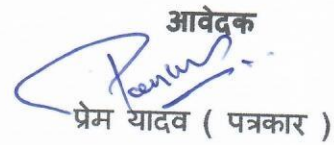 आवेदक
प्रेम यादव ( पत्रकार )